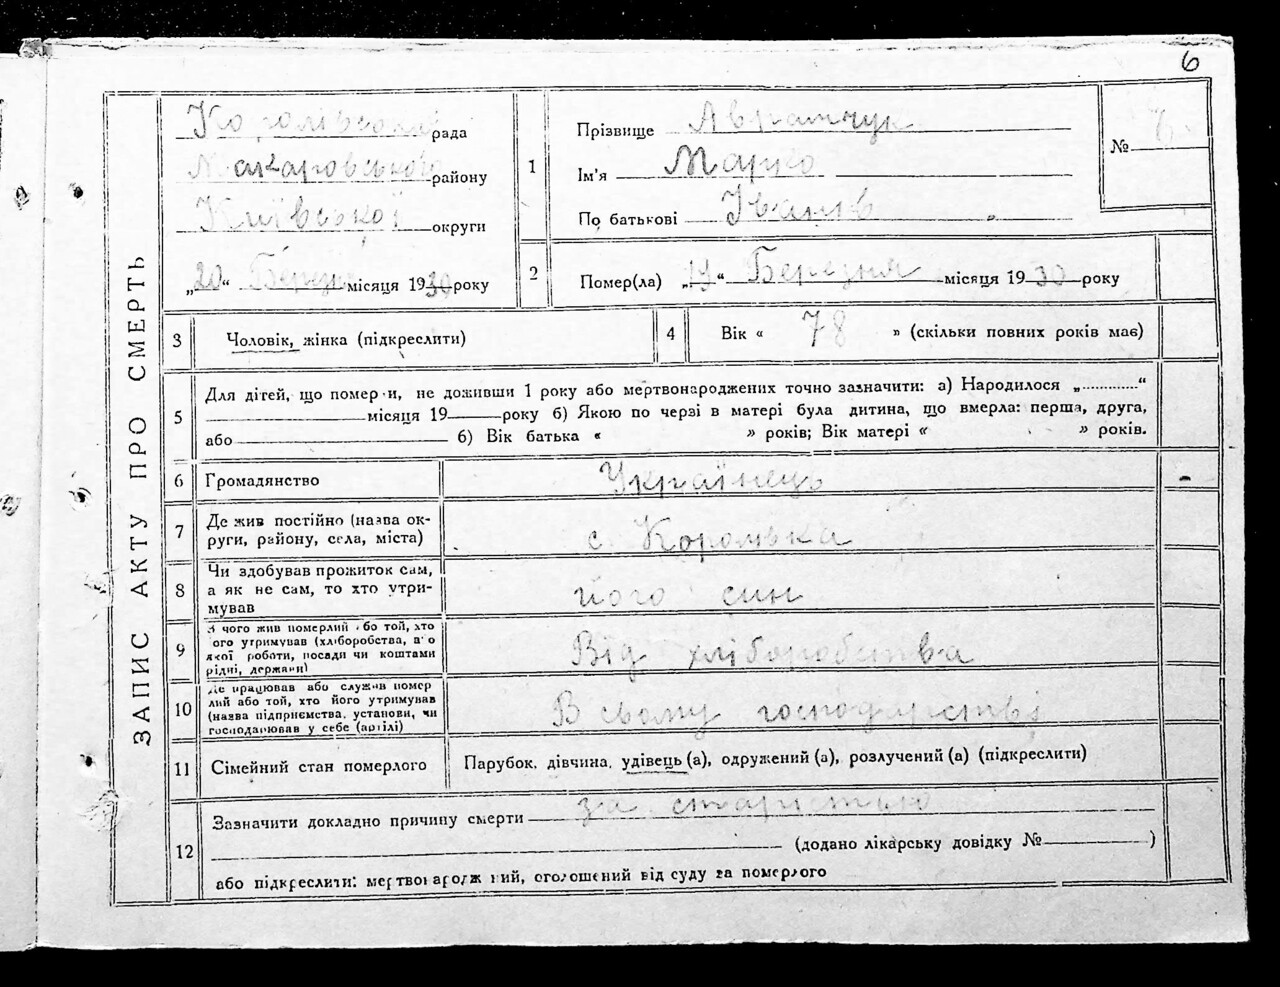 6
ЗАПИС АКТУ ПРО СМЕРТЬ
Королівської рада
Макаровського району
Київської округи
„20“ Березня місяця 1930 року
1
Прізвище Аврамчук
Ім'я Марко
По батькові Іванів
№
2
Помер(ла) „19“ Березня місяця 1930 року
3
Чоловік, жінка (підкреслити)
4
Вік « 78 » (скільки повних років має)
5
Для дітей, що помер и, не доживши 1 року або мертвонароджених точно зазначити: а) Народилося „............“
місяця 19 року б) Якою по черзі в матері була дитина, що вмерла: перша, друга,
або б) Вік батька « » років; Вік матері « » років.
6
Громадянство
Українець
7
Де жив постійно (назва ок-
руги, району, села, міста)
с. Королівка
8
Чи здобував прожиток сам,
а як не сам, то хто утри-
мував
його син
9
З чого жив померлий або той, хто
його утримував (хліборобства, або
якої роботи, посади чи коштами
рідні, держави)
Від хліборобства
10
Де працював або служив помер
лий або той, хто його утримував
(назва підприємства, установи, чи
господарював у себе (артілі)
В свому господарстві
11
Сімейний стан померлого
Парубок, дівчина, удівець (а), одружений (а), розлучений (а) (підкреслити)
12
Зазначити докладно причину смерти за старістью
(додано лікарську довідку № )
або підкреслити: мертвонароджений, оголошений від суду за померлого